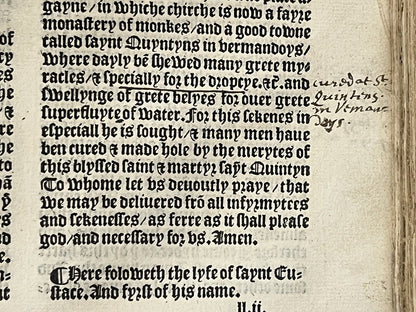 gayne/ in whiche chirche is now a fayre
monastery of monkes/and a good towne
called saynt Quyntyns in vermandoys/
where dayly bē shewed many grete my
racles/⁊ specially for the dropcye.⁊c̄. and
swellynge of grete belyes for ouer grete
superfluyte of water. For this sekenes in
especiall he is sought/⁊ many men haue
ben cured ⁊ made hole by the merytes of
this blyssed saint ⁊ martyr saȳt Quintyn
To whome let vs deuoutly praye/that
we may be deliuered frō all infyrmytees
and sekenesses/as ferre as it shall please
god/and necessary for vs. Amen.
¶Here foloweth the lyfe of saynt Eu-
stace. And fyrst of his name.
ll.ii.
cured at St
Quintins
in